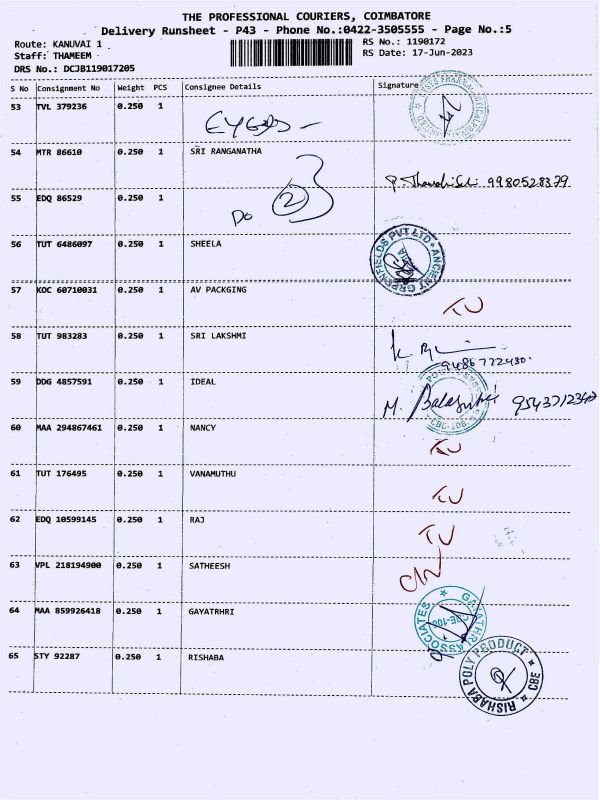 THE PROFESSIONAL COURIERS, COIMBATORE
Delivery Runsheet - P43 - Phone No.:0422-3505555 - Page No.:5
Route: KANUVAI 1 RS No.: 1190172
Staff: THAMEEM RS Date: 17-Jun-2023
DRS No.: DCJB119017205
S No Consignment No Weight PCS Consignee Details Signature
53 TVL 379236 0.250 1
54 MTR 86610 0.250 1 SRI RANGANATHA
9980528379
55 EDQ 86529 0.250 1
Do 2
56 TUT 6486097 0.250 1 SHEELA
ANCIENT GREENFIELDS PVT LTD
57 KOC 60710031 0.250 1 AV PACKGING
58 TUT 983283 0.250 1 SRI LAKSHMI
9486772480
59 DDG 4857591 0.250 1 IDEAL
60 MAA 294867461 0.250 1 NANCY
61 TUT 176495 0.250 1 VANAMUTHU
62 EDQ 10599145 0.250 1 RAJ
63 VPL 218194900 0.250 1 SATHEESH
64 MAA 859926418 0.250 1 GAYATRHRI
GAYATHRI ASSOCIATES
65 STY 92287 0.250 1 RISHABA
RISHABA POLY PRODUCT CBE